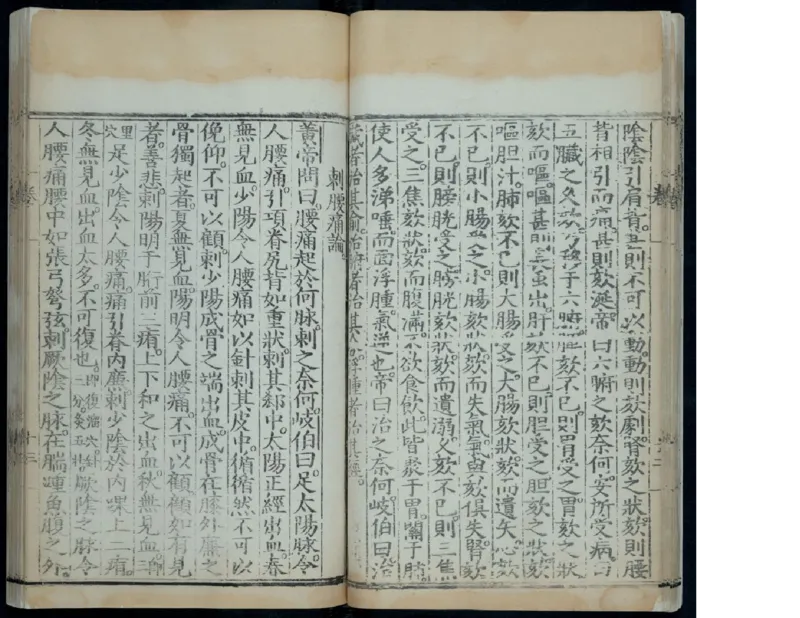 陰陰引肩背甚則不可以動動則欬劇腎欬之狀欬則腰
背相引而痛甚則欬涎帝曰六腑之欬奈何安所受病曰
五臟之久欬乃移于六腑脾欬不已則胃受之胃欬之狀
欬而嘔嘔甚則長虫出肝欬不已則胆受之胆欬之狀欬
嘔胆汁肺欬不已則大腸受之大腸欬狀欬而遺矢心欬
不已則小腸受之小腸欬狀欬而失氣氣與欬俱失腎欬
不已則膀胱受之膀胱欬狀欬而遺溺久欬不已則三焦
受之三焦欬狀欬而腹滿不欲食飲此皆聚于胃關于肺
使人多涕唾而面浮腫氣逆也帝曰治之奈何岐伯曰治
臟者治其俞治腑者治其合浮腫者治其經
刺腰痛論
黃帝問曰腰痛起於何脉刺之奈何岐伯曰足太陽脉令
人腰痛引項脊尻背如重狀刺其郄中太陽正經出血春
無見血少陽令人腰痛如以針刺其皮中循循然不可以
俛仰不可以顧刺少陽成骨之端出血成骨在膝外廉之
骨獨起者夏無見血陽明令人腰痛不可以顧顧如有見
者善悲刺陽明于胻前三痏上下和之出血秋無見血即
里穴足少陰令人腰痛痛引脊內廉刺少陰於內踝上二痏
冬無見血出血太多不可復也即復溜穴針三分灸五壯厥陰之脉令
人腰痛腰中如張弓弩弦刺厥陰之脉在腨踵魚腹之外